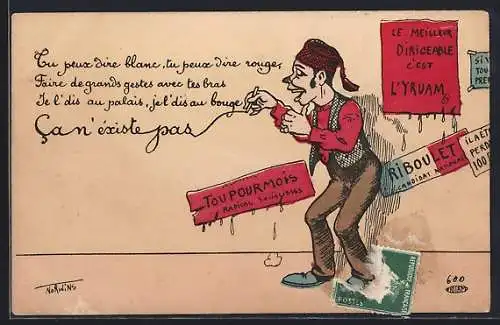 Tu peux dire blanc, tu peux dire rouge,
Faire de grands gestes avec tes bras
Je l'dis au palais, je l'dis au bouge
Ça n'éxiste pas
LE MEILLEUR
DIRIGEABLE
C'EST
L'YRUAM
SI V
TOU
PRE
RIBOULET
CANDIDAT NATIONAL
IL A ÉTÉ
PERD
100
TOUPOURMOIS
RADICAL SOCIALISTE
NORWINS
600
REPUBLIQUE FRANÇAISE
POSTES